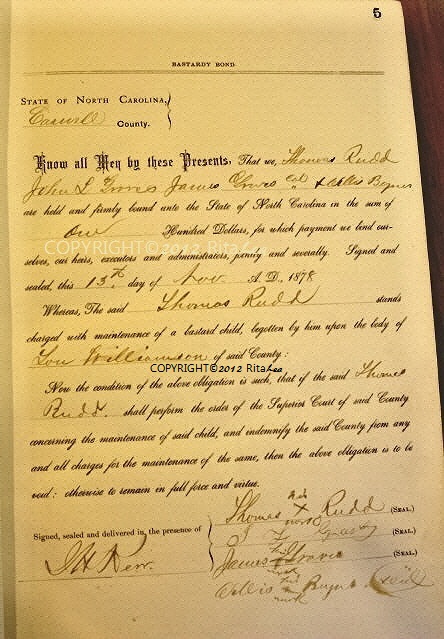 5
BASTARDY BOND.
STATE OF NORTH CAROLINA,
Caswell County.
Know all Men by these Presents, That we, Thomas Rudd
John L Graves James Graves Col & Willis Bynum
are held and firmly bound unto the State of North Carolina in the sum of
One Hundred Dollars, for which payment we bend our-
COPYRIGHT©2012 RitaLea
selves, our heirs, executors and administrators, jointly and severally. Signed and
sealed, this 13th day of Nov A. D., 1878
Whereas, The said Thomas Rudd stands
charged with maintenance of a bastard child, begotten by him upon the body of
Lou Williamson of said County:
COPYRIGHT©2012 RitaLea
Now the condition of the above obligation is such, that if the said Thomas
Rudd. shall perform the order of the Superior Court of said County
concerning the maintenance of said child, and indemnify the said County from any
and all charges for the maintenance of the same, then the above obligation is to be
void: otherwise to remain in full force and virtue.
Thomas his X mark Rudd (SEAL.)
Signed, sealed and delivered in the presence of
J Graves (SEAL.)
James his mark Graves (SEAL.)
Willis his mark